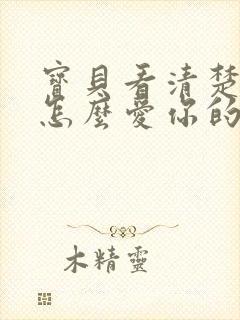 寶貝看清楚
怎麼愛你的
木精靈